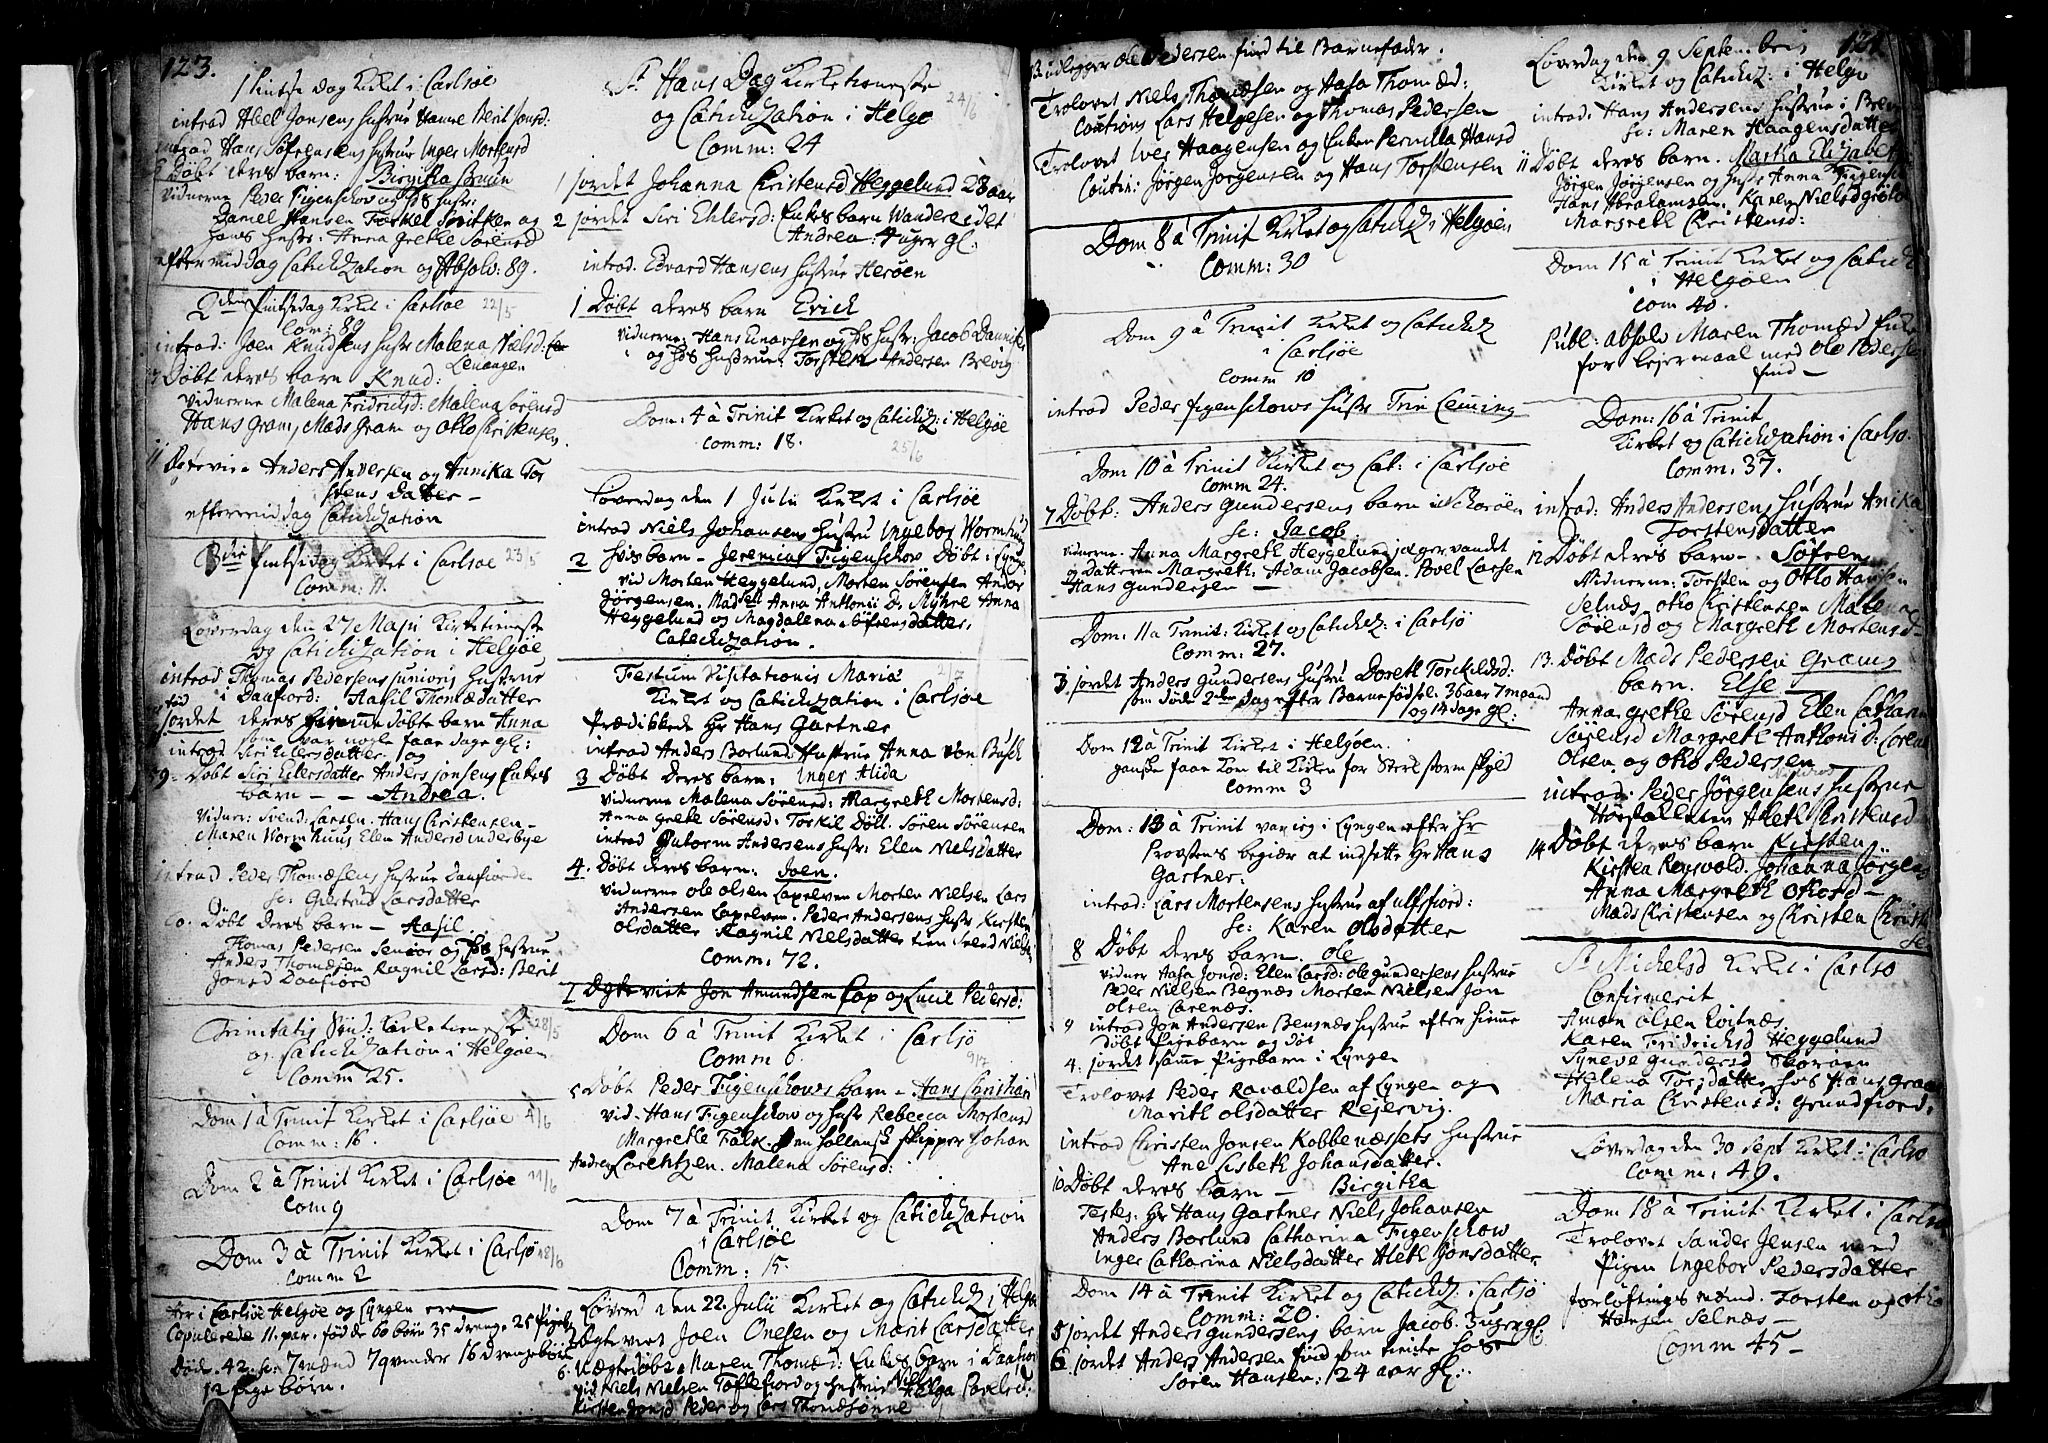 123.
1 Pintse dag Kirket i Carlsøe
introd Abel Jonsens Hustrue Hanne Berit Jonsd:
introd Hans Søfrensens hustrue Inger Mortensd
Døbt deres barn: Birgitha Bruun
vidnerne Peder Figenschov og hs hustr:
Daniel Hansen Torkel Snitker og
hans hustr: Anna Grethe Sørensd
eftermiddag Catichization og Absolv: 89.
2den Pintsedag Kirket i Carlsøe 22/5
Com: 89
introd: Joen Knudsens hustr Malena Nielsd:
Lenangen
Døbt deres barn Knud:
vidnerne Malena Fridrichsd: Malena Sørensd
Hans Gram, Mads Gram og Otho Christensen.
11 Anders Andersen og Annika Tor
stens datter –
eftermiddag Catichization
3die Pintsedag Kirket i Carlsøe 23/5
Comm: 11.
Løverdag den 27 Maji Kirketieneste
og Catichization i Helgøe
introd Thomas Pedersens junioris Hustrue
i Daafiord: Aasil Thomædatter
jordet deres hiemme døbte barn Anna
som var nogle faae dage gl:
introd Siri Eilersdatter og
59. Døbt Siri Eilersdatter Anders Jonsens Enkes
barn – – Andrea.
Vidner: Svend Larsen. Hans Christensen –
Maren Wormhuus Elen Andersd inderbye
introd Peder Thomæsens hustrue Daafiorden
sc: Giertrud Larsdatter
60. Døbt deres barn – Aasil.
Thomas Pedersen Senior og hs hustrue
Anders Thomæsen Ragnil Larsd: Berit
Jonsd Daafiord
Trinitatis Sønd: Kirketieneste 28/5
og Catichization i Helgøen
Comm 25.
Dom 1 à Trinit Kirket i Carlsøe 4/6
Comm: 16.
Dom 2 à Trinit Kirket i Carlsøe 11/6
Com 9
Dom 3 à Trinit Kirket i Carlsø 18/6
Comm 2
Her i Carlsøe Helgøe og Lyngen ere
Copulerede 11. par. fødde 60 børn 35 drenge 25 Piger
Døde. 42. sc: 7 mænd 7 qvinder 16 drengebørn
12 pige børn.
St Hans Dag Kirketieneste 24/6
og Catichization i Helgø
Comm: 24
1 jordet Johanna Christensd Heggelund 28 aar
2 jordet Siri Ehlersd: Enkes barn Wanderedet
Andrea: 4 uger gl:
introd. Edvard Hansens hustrue Herøen
1 Døbt deres barn Erich
vidnerne: Hans Enarsen og hs hustr: Jacob Danniels
og hs hustrue: Torsten Andersen Brevig
Dom: 4 à Trinit Kirket og Catichiz: i Helgøe
Comm: 18. 25/6
Løverdag den 1 Julii Kirket i Carlsøe
introd Niels Johansens hustru Ingebor Wormhuus
2 hvis barn – Jeremias Figenschov Døbt i Lyng:
vid Morten Heggelund, Morten Sørensen Andor
Jørgensen. Madsell Anna Anthonii D. Myhre Anna
Heggelund og Magdalena Søfrensdatter.
Catechization.
Festum Visitationis Mariæ 2/7
Kirket og Catichization i Carlsøe
Prædikkede Hr Hans Gartner
introd Anders Borlund Hustrue Anna von Busch
3 Døbt Deres barn: Inger Alida
vidnerne Malena Sørensd: Margreth Mortensd:
Anna Grete Sørensd: Torkil Døll. Søren Sørensen
introd Guttorm Andersens hustr: Elen Nielsdatter
4. Døbt deres barn: Joen.
vidnerne Ole Olsen Laxelven Morten Nielsen Lars
Andersen Laxelven. Peder Andersens hustr, Kirsten
Olsdatter Ragnil Nielsdatter tien Svend Niels
Comm: 72.
1 Ægteviet Jon Amundsen Lap og Lucie Pedersd:
Dom 6 à Trinit Kirket i Carlsø
Comm 6. 9/7
5 Døbt Peder Figenschows barn – Hans Christian
vid. Hans Figenschow og hustr Rebecca Mortensd
Margrethe Falck. Den Hollansk Skipper Johan
Andreas Lorentzen. Malena Sørensd:
Dom 7 à Trinit Kirket og Catichization
i Carlsøe
Comm: 15.
Løverd den 22. Julii Kirket og Catichiz i Helg
2 Ægteviet Joen Onesen og Marit Larsdatter
6. Uægte døbt Maren Thomæd: Enkes barn i Daafior
vid Niels Nielsen Toflefiord og hustrue Helga Povelsd:
Kirsten Jonsd Peder og Lars Thomæsønne
124
Udlegger Ole Pedersen find til Barnefader.
Trolovet Niels Thomæsen og Aasa Thomæd:
Coutions Lars Helgesen og Thomas Pedersen
Trolovet Iver Haagensen og Enken Pernilla Hansd
Coutin: Jørgen Jørgensen og Hans Torstensen
Dom 8 à Trinit Kirket og Catichiz i Helgøen
Comm: 30
Dom 9 à Trinit Kirket og Catichiz
i Carlsøe
Comm 10
introd Peder Figenschows hustr Trin Leming
Dom 10 à Trinit Kirket og Cat: i Carlsøe
Comm 24.
7 Døbt: Anders Gundersens barn i Skorøen
sc: Jacob
vidnerne. Anna Margreth Heggelund jæger vandet
og Datteren Margreth. Adam Jacobsen. Povel Larsen
Hans Gundersen –
Dom: 11 a Trinit: Kirket og Catichiz: i Carlsø
Comm: 27.
3. jordet Anders Gundersens hustru Doreth Torckildsd:
som døde 2den dag efter Barnefødsel. 36 aar 7 maaned
og 14 dage gl:
Dom 12 à Trinit Kirket i Helgøen.
ganske faae kom til Kirken for sterk storm skyld
Comm 3
Dom: 13 à Trinit var jeg i Lyngen efter Hr
Provstens begiær at indsette Hr Hans
Gartner:
introd: Lars Mortensens hustrue af Ulfsfiord:
sc: Karen Olsdatter
8 Døbt deres barn. Ole
vidner Aasa Jonsd: Elen Larsd: Ole Gundersens hustrue
Peder Nielsen Bergnæs Morten Nielsen Jon
Olsen Carenæs.
9 introd Jon Andersen Bensnæs hustrue efter hiemme
døbt Pigebarn og døt
4. jordet samme Pigebarn i Lyngen
Trolovet Peder Ravaldsen af Lyngen og
Marith Olsdatter Rejervig.
introd Christen Jonsen Kobbenæssets hustrue
Ane Lisbeth Johansdatter.
10 Døbt deres barn – Birgitha
Testes: Hr Hans Gartner Niels Johansen
Anders Borlund Catharina Figenschow
Inger Catharina Nielsdatter Aleth Jonsdatter
Dom 14 à Trinit Kirket og Catichiz: i Carlsø
Comm: 20.
5 jordet Anders Gundersens barn Jacob. 3 uger gl:
6 jordet Anders Andersen find som tiente hos
Søren Hansen: 24 aar gl:
Løverdag den 9 Septembris
Kirket og Catichiz: i Helgø
introd: Hans Andersens hustrue i Brev
sc: Maren Haagensdatter
11 Døbt deres barn. Martha Elizabeth
Jørgen Jørgensen og hustr Anna Jørgensd
Hans Abrahamsen. Karen Nielsd Grøto
Margreth Christensd:
Dom 15 à Trinit Kirket og Catich
i Helgøen
Com 40.
Publ: absolv Maren Thomæd Enke
for lejermaal med Ole Pederse
find –
Dom: 16 à Trinit
Kirket og Catichization i Carlsø.
Comm: 37.
introd: Anders Andersens hustrue Anika
Torstensdatter
12 Døbt deres barn – Søfren
Vidnerne: Torsten og Otho Hansen
Selnæs. Otho Christensen Malena
Sørensd og Margreth Mortensd –
13. Døbt Mads Pedersen Grams
barn. Else –
Anna Grethe Sørensd Elen Cathar
Sørensd Margreth Anthonisd: Loren
Olsen og Otho Pedersen
introd: Peder Jørgensens hustrue
Aleth Christensd
14 Døbt deres barn Kirsten
Kirsten Ronvold. Johanna Jørgens
Anna Margreth Othosd –
Mads Christensen og Christen Christ
se
St Michelsd Kirket i Carlsø
Confirmerit
Amon Olsen Evitnæs
Karen Fridrichsd Heggelund
Syneve Gundersd Skorøen
Helena Torsdatter hos Hans Gram
Maria Christensd: Grundfiord.
Løverdag den 30 Sept Kirket i Carlsø
Comm: 49.
Dom 18 à Trinit: Kirket i Carlsø
Trolovet Sander Jensen med
Pigen Ingebor Pedersdatter
forløftings mænd. Torsten og Otho
Hansen Selnæs –
Comm 45 –